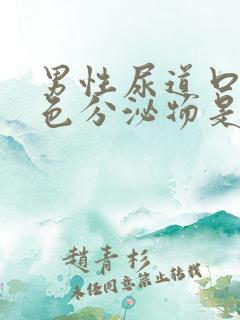 男性尿道口
色分泌物是
趙青杉
未经同意禁止转载